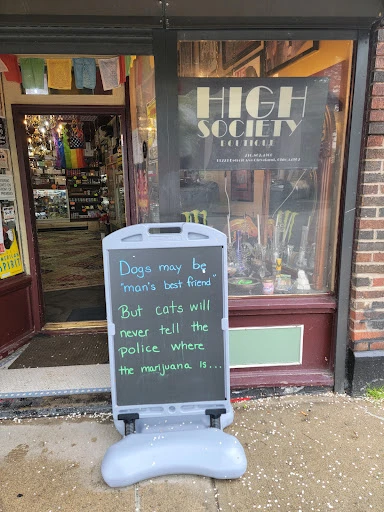 HIGH
SOCIETY
BOUTIQUE
Dogs may be
"man's best friend"
But cats will
never tell the
police where
the marijuana is...